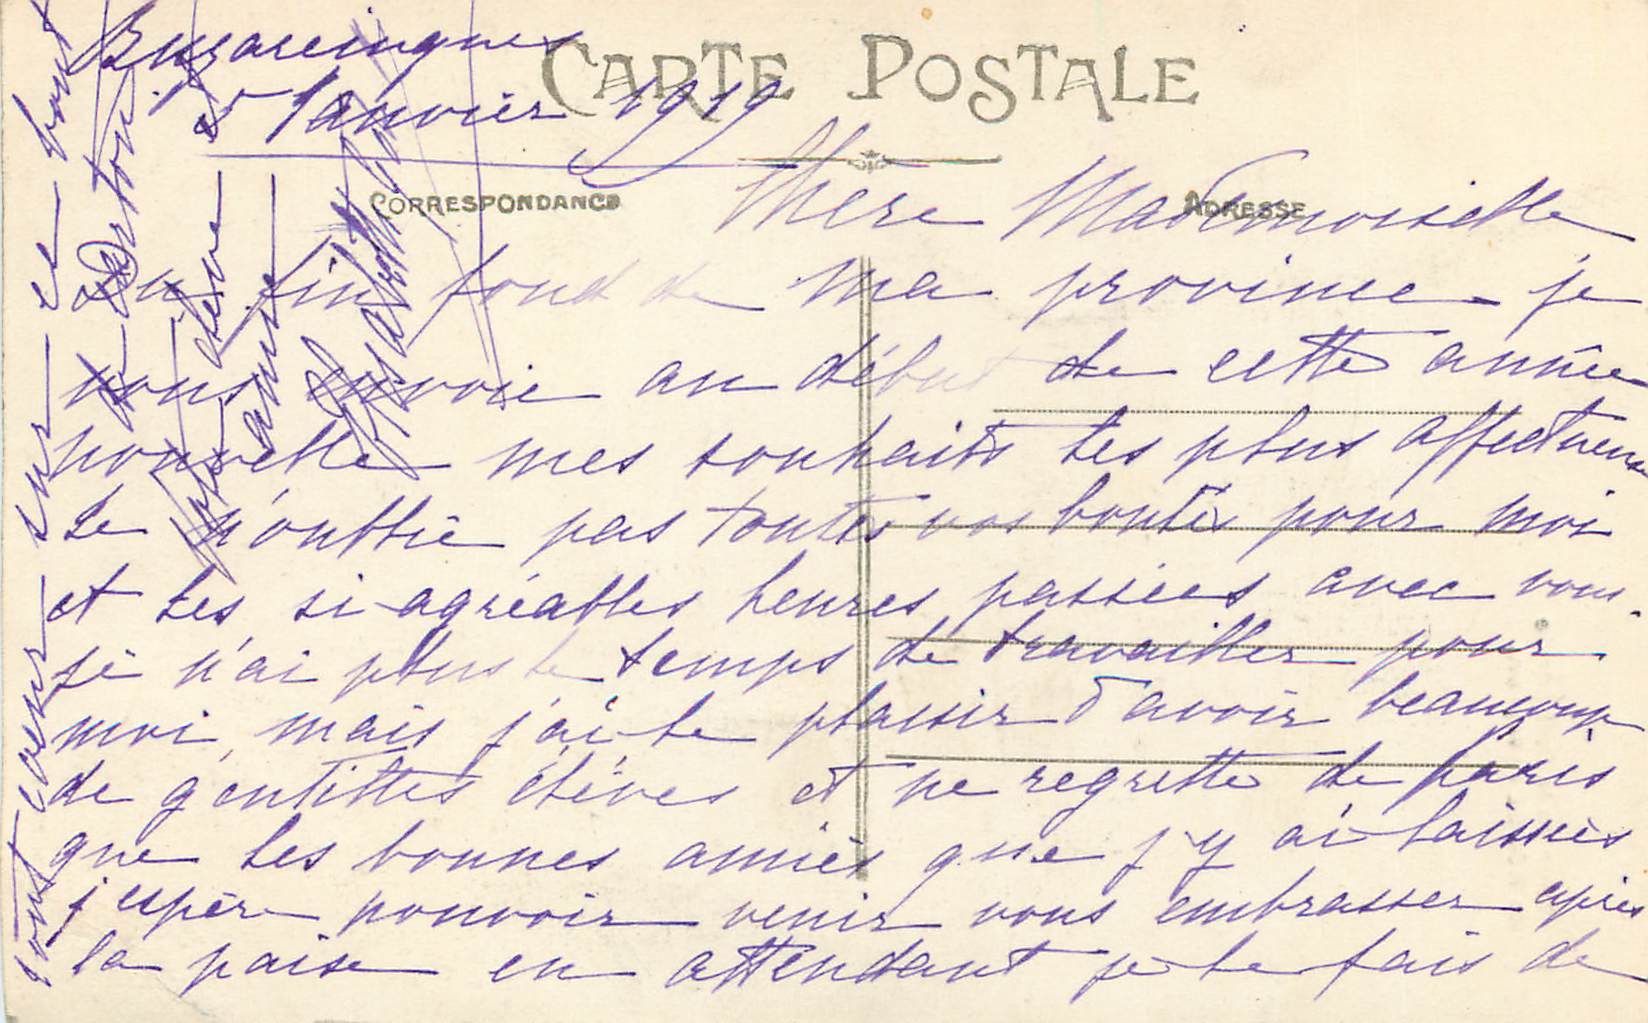 Buzareingues
5 Janvier 1919
CARTE POSTALE
CORRESPONDANCE
ADRESSE
Chère Mademoiselle
Du fin fond de ma province je
vous envoie au début de cette année
nouvelle mes souhaits les plus affectueux
Je n'oublie pas toutes vos bontés pour moi
et les si agréables heures passées avec vous.
je n'ai plus le temps de travailler pour
moi, mais j'ai le plaisir d'avoir beaucoup
de gentilles élèves et ne regrette de Paris
que les bonnes amies que j'y ai laissées
j'espère pouvoir venir vous embrasser après
la paix en attendant je le fais de
tout cœur sur ce bout
de carton
Votre élève
aimante